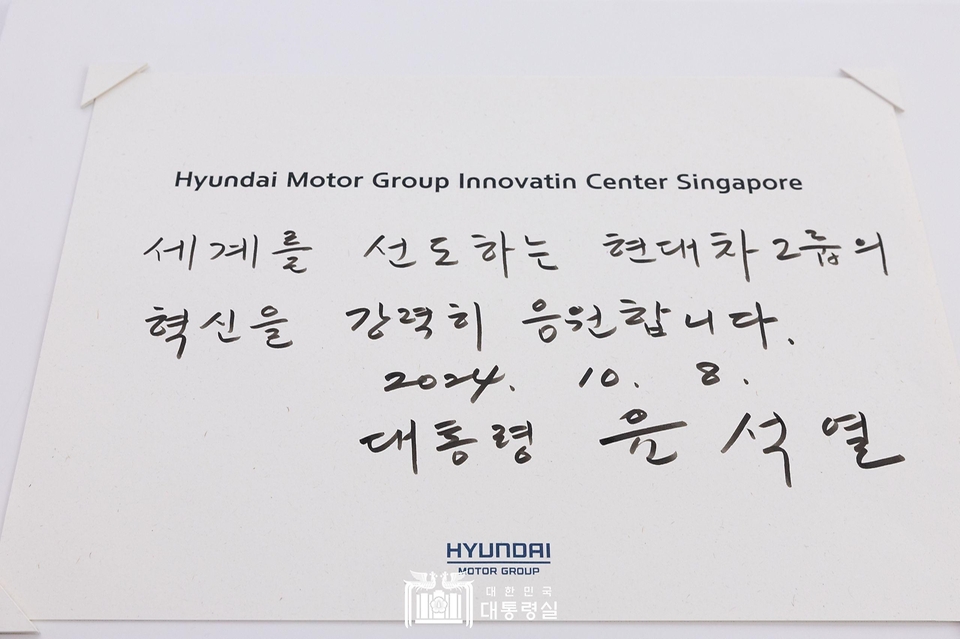 Hyundai Motor Group Innovatin Center Singapore
세계를 선도하는 현대차그룹의
혁신을 강력히 응원합니다.
2024. 10. 8.
대통령 윤석열
HYUNDAI
MOTOR GROUP
대한민국
대통령실